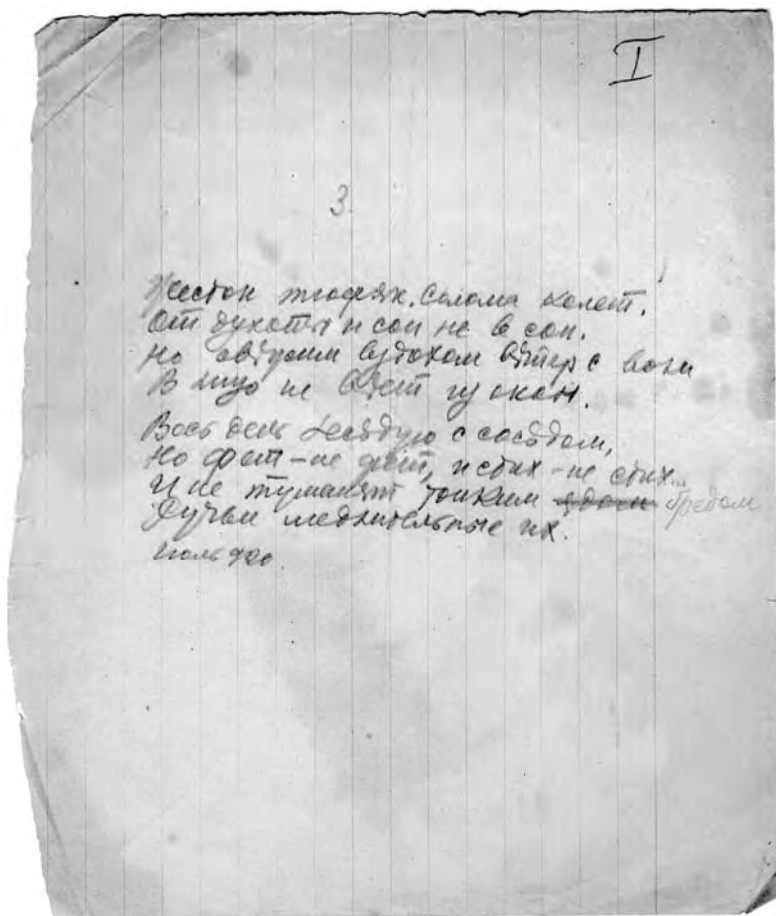 I
3.
Жесток тюфяк. Солома колет.
От духоты и сон не в сон.
Но вздохом вѣтер с воли
В лицо не вѣет из окон.
Весь день бесѣдую с сосѣдом,
Но фет - не фет, и стих - не стих...
И не туманят тонким ядом бредом
медлительные их.